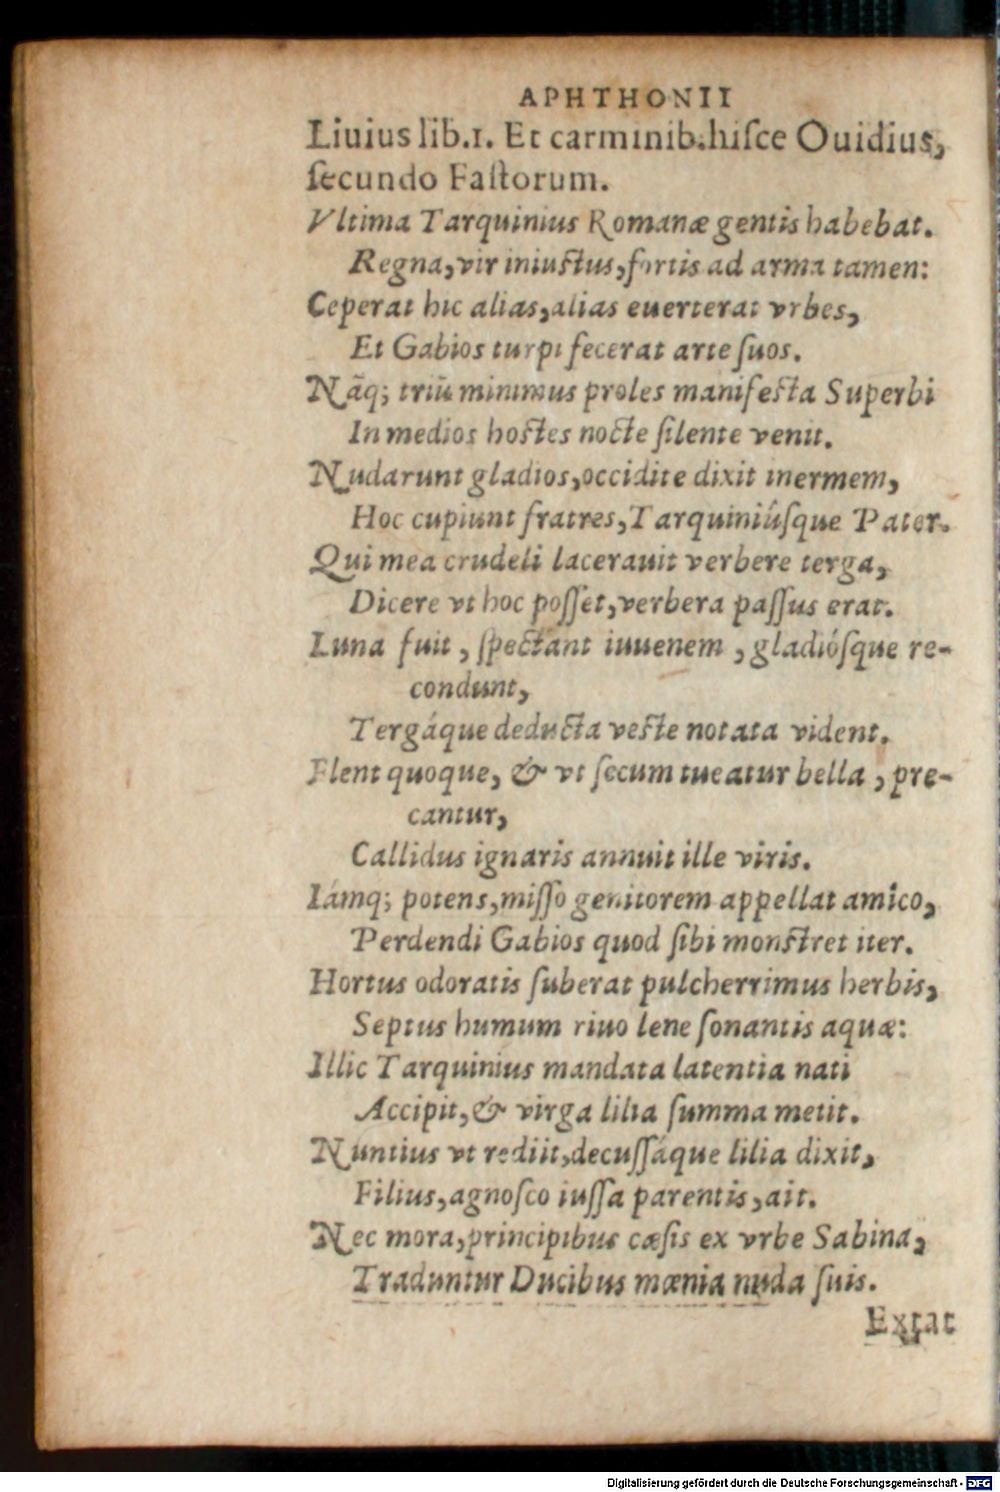 APHTHONII
Liuius lib.1. Et carminib.hisce Ouidius,
secundo Fastorum.
Vltima Tarquinius Romanæ gentis habebat.
Regna,vir iniustus,fortis ad arma tamen:
Ceperat hic alias,alias euerterat vrbes,
Et Gabios turpi fecerat arte suos.
Nãq; triũ minimus proles manifesta Superbi
In medios hostes nocte silente venit.
Nudarunt gladios,occidite dixit inermem,
Hoc cupiunt fratres,Tarquiniúsque Pater.
Qui mea crudeli lacerauit verbere terga,
Dicere vt hoc posset,verbera passus erat.
Luna fuit , spectant iuuenem , gladiósque re-
condunt,
Tergáque deducta veste notata vident.
Flent quoque, & vt secum tueatur bella , pre-
cantur,
Callidus ignaris annuit ille viris.
Iámq; potens,misso genitorem appellat amico,
Perdendi Gabios quod sibi monstret iter.
Hortus odoratis suberat pulcherrimus herbis,
Septus humum riuo lene sonantis aquæ:
Illic Tarquinius mandata latentia nati
Accipit,& virga lilia summa metit.
Nuntius vt rediit,decussáque lilia dixit,
Filius,agnosco iussa parentis,ait.
Nec mora,principibus cæsis ex vrbe Sabina,
Traduntur Ducibus mœnia nuda suis.
Extat
Digitalisierung gefördert durch die Deutsche Forschungsgemeinschaft - DFG